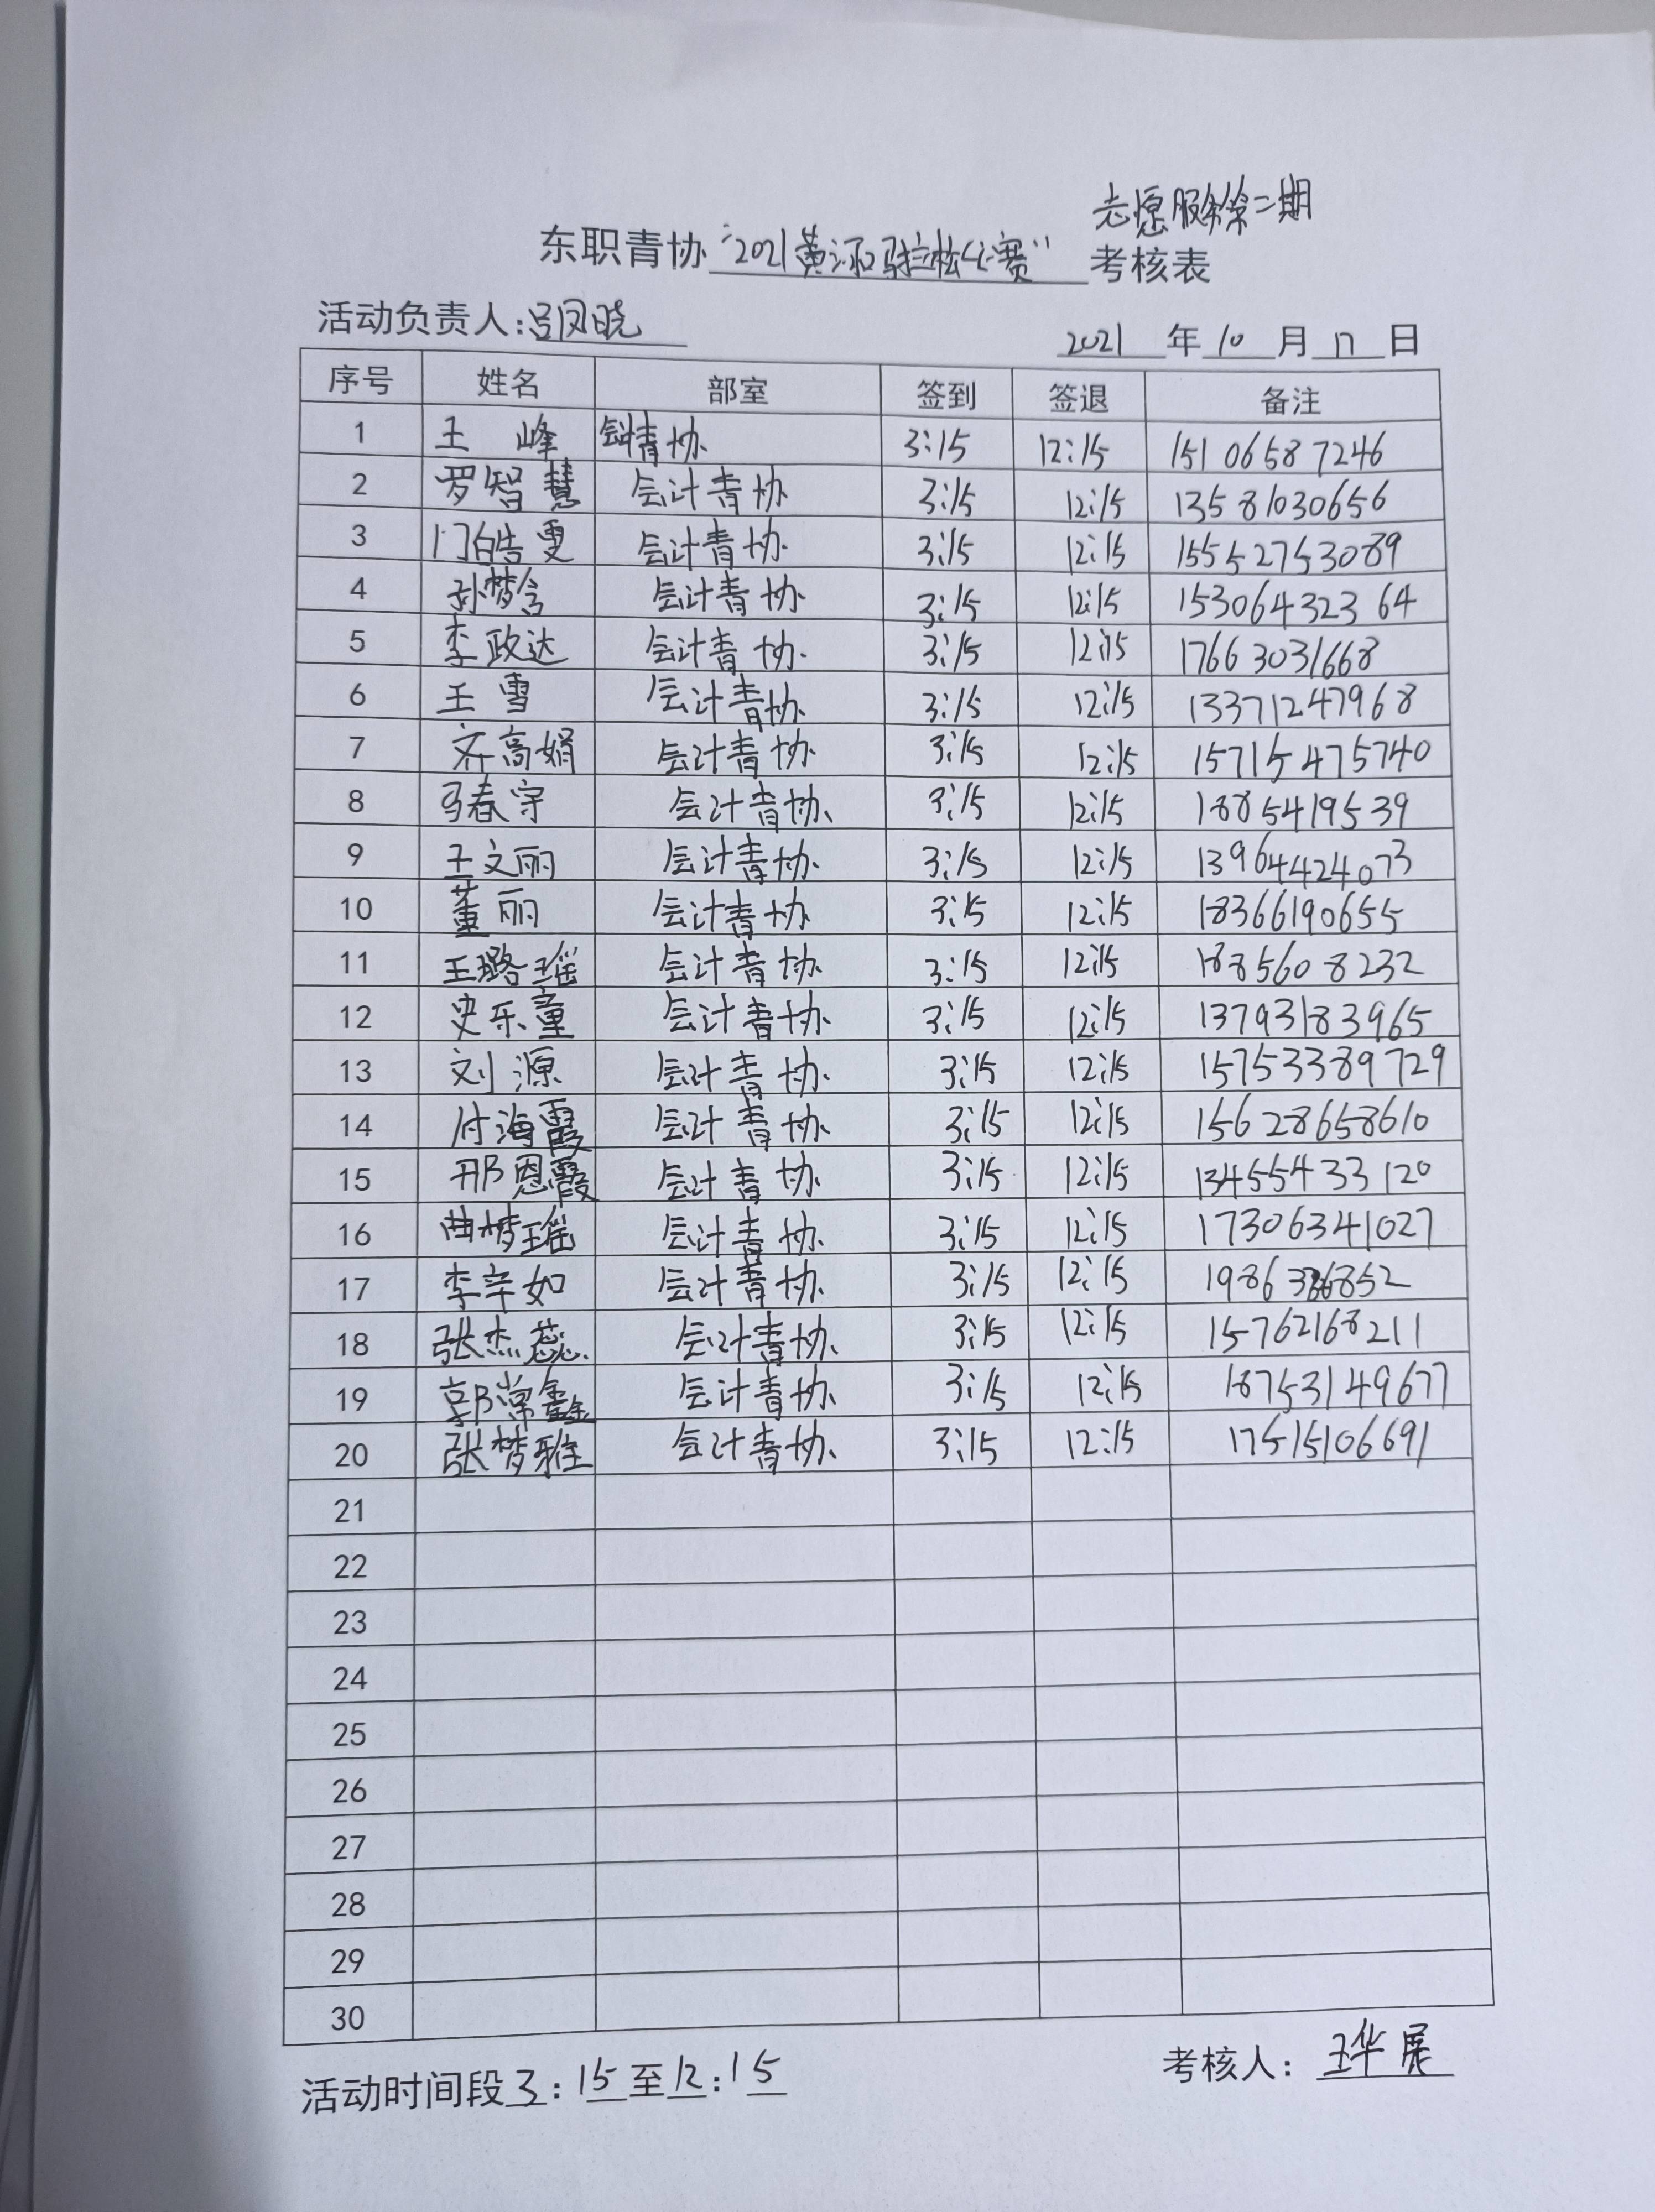 志愿服务第二期
东职青协“2021黄河马拉松比赛”考核表
活动负责人:吕凤晓
2021年10月17日
序号 姓名 部室 签到 签退 备注
1 王峰 会计青协 3:15 12:15 15106587246
2 罗智慧 会计青协 3:15 12:15 13581030656
3 门皓雯 会计青协 3:15 12:15 15552753089
4 孙梦含 会计青协 3:15 12:15 15306432364
5 李政达 会计青协 3:15 12:15 17663031668
6 王雪 会计青协 3:15 12:15 13371247968
7 齐高娟 会计青协 3:15 12:15 15715475740
8 马春宇 会计青协 3:15 12:15 1885419539
9 王文丽 会计青协 3:15 12:15 13964424073
10 董丽 会计青协 3:15 12:15 18366190655
11 王璐瑶 会计青协 3:15 12:15 1885608232
12 史乐童 会计青协 3:15 12:15 13793183965
13 刘源 会计青协 3:15 12:15 15753389729
14 付海霞 会计青协 3:15 12:15 15628658610
15 邢恩霞 会计青协 3:15 12:15 13455433120
16 曲梦瑶 会计青协 3:15 12:15 17306341027
17 李辛如 会计青协 3:15 12:15
18 张杰蕊 会计青协 3:15 12:15 15762168211
19 郭常鑫 会计青协 3:15 12:15 18753149677
20 张梦雅 会计青协 3:15 12:15 17515106691
21
22
23
24
25
26
27
28
29
30
活动时间段3:15至12:15
考核人:王华展